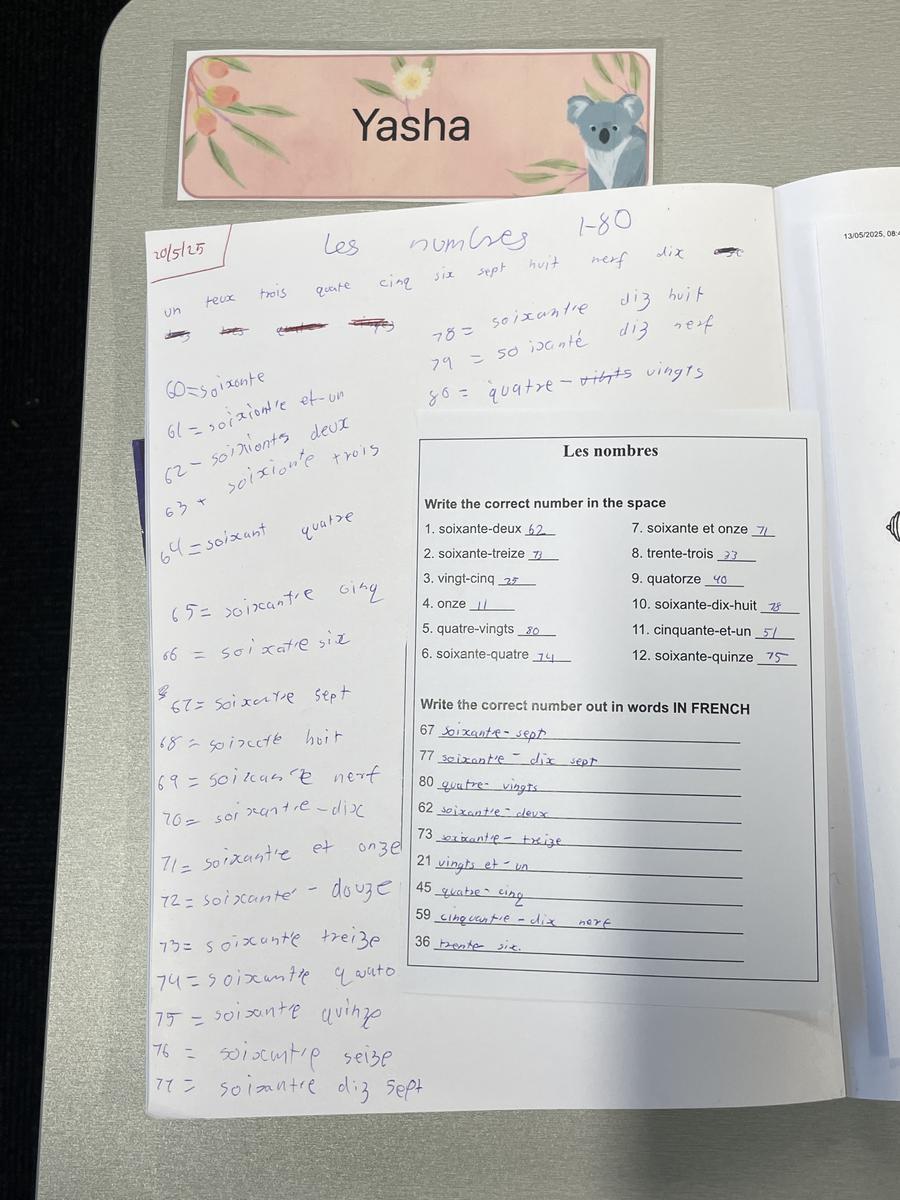 Yasha
20/5/25
Les numbres 1-80
un teux trois quate cinq six sept huit nerf dix
60=soixonte
61=soixiont'e et-un
62-soixionts deux
63 * soixionte trois
64=soixant quatre
65= soixant're cinq
66 = soixatre six
67= soixantre sept
68= soixcte huit
69 = soixcante nerf
70= soixantre-dix
71= soixant'e et onze
72=soixanté - douze
73= soixante treize
74=soixantre quato
75 =soixante quinze
76 = soixantre seize
77= soixantre diz sept
78= soixantre diz huit
79 = soixanté diz nerf
80= quatre- vingts
13/05/2025, 08:4
Les nombres
Write the correct number in the space
1. soixante-deux 62
2. soixante-treize 73
3. vingt-cinq 25
4. onze 11
5. quatre-vingts 80
6. soixante-quatre 74
7. soixante et onze 71
8. trente-trois 33
9. quatorze 40
10. soixante-dix-huit 78
11. cinquante-et-un 51
12. soixante-quinze 75
Write the correct number out in words IN FRENCH
67 soixantre- sept
77 soixantre - dix sept
80 quatre- vingts
62 soixantre-deux
73 soixantre- treize
21 vingts et-un
45 quatre- cinq
59 cinquantre-dix nerf
36 trente six.